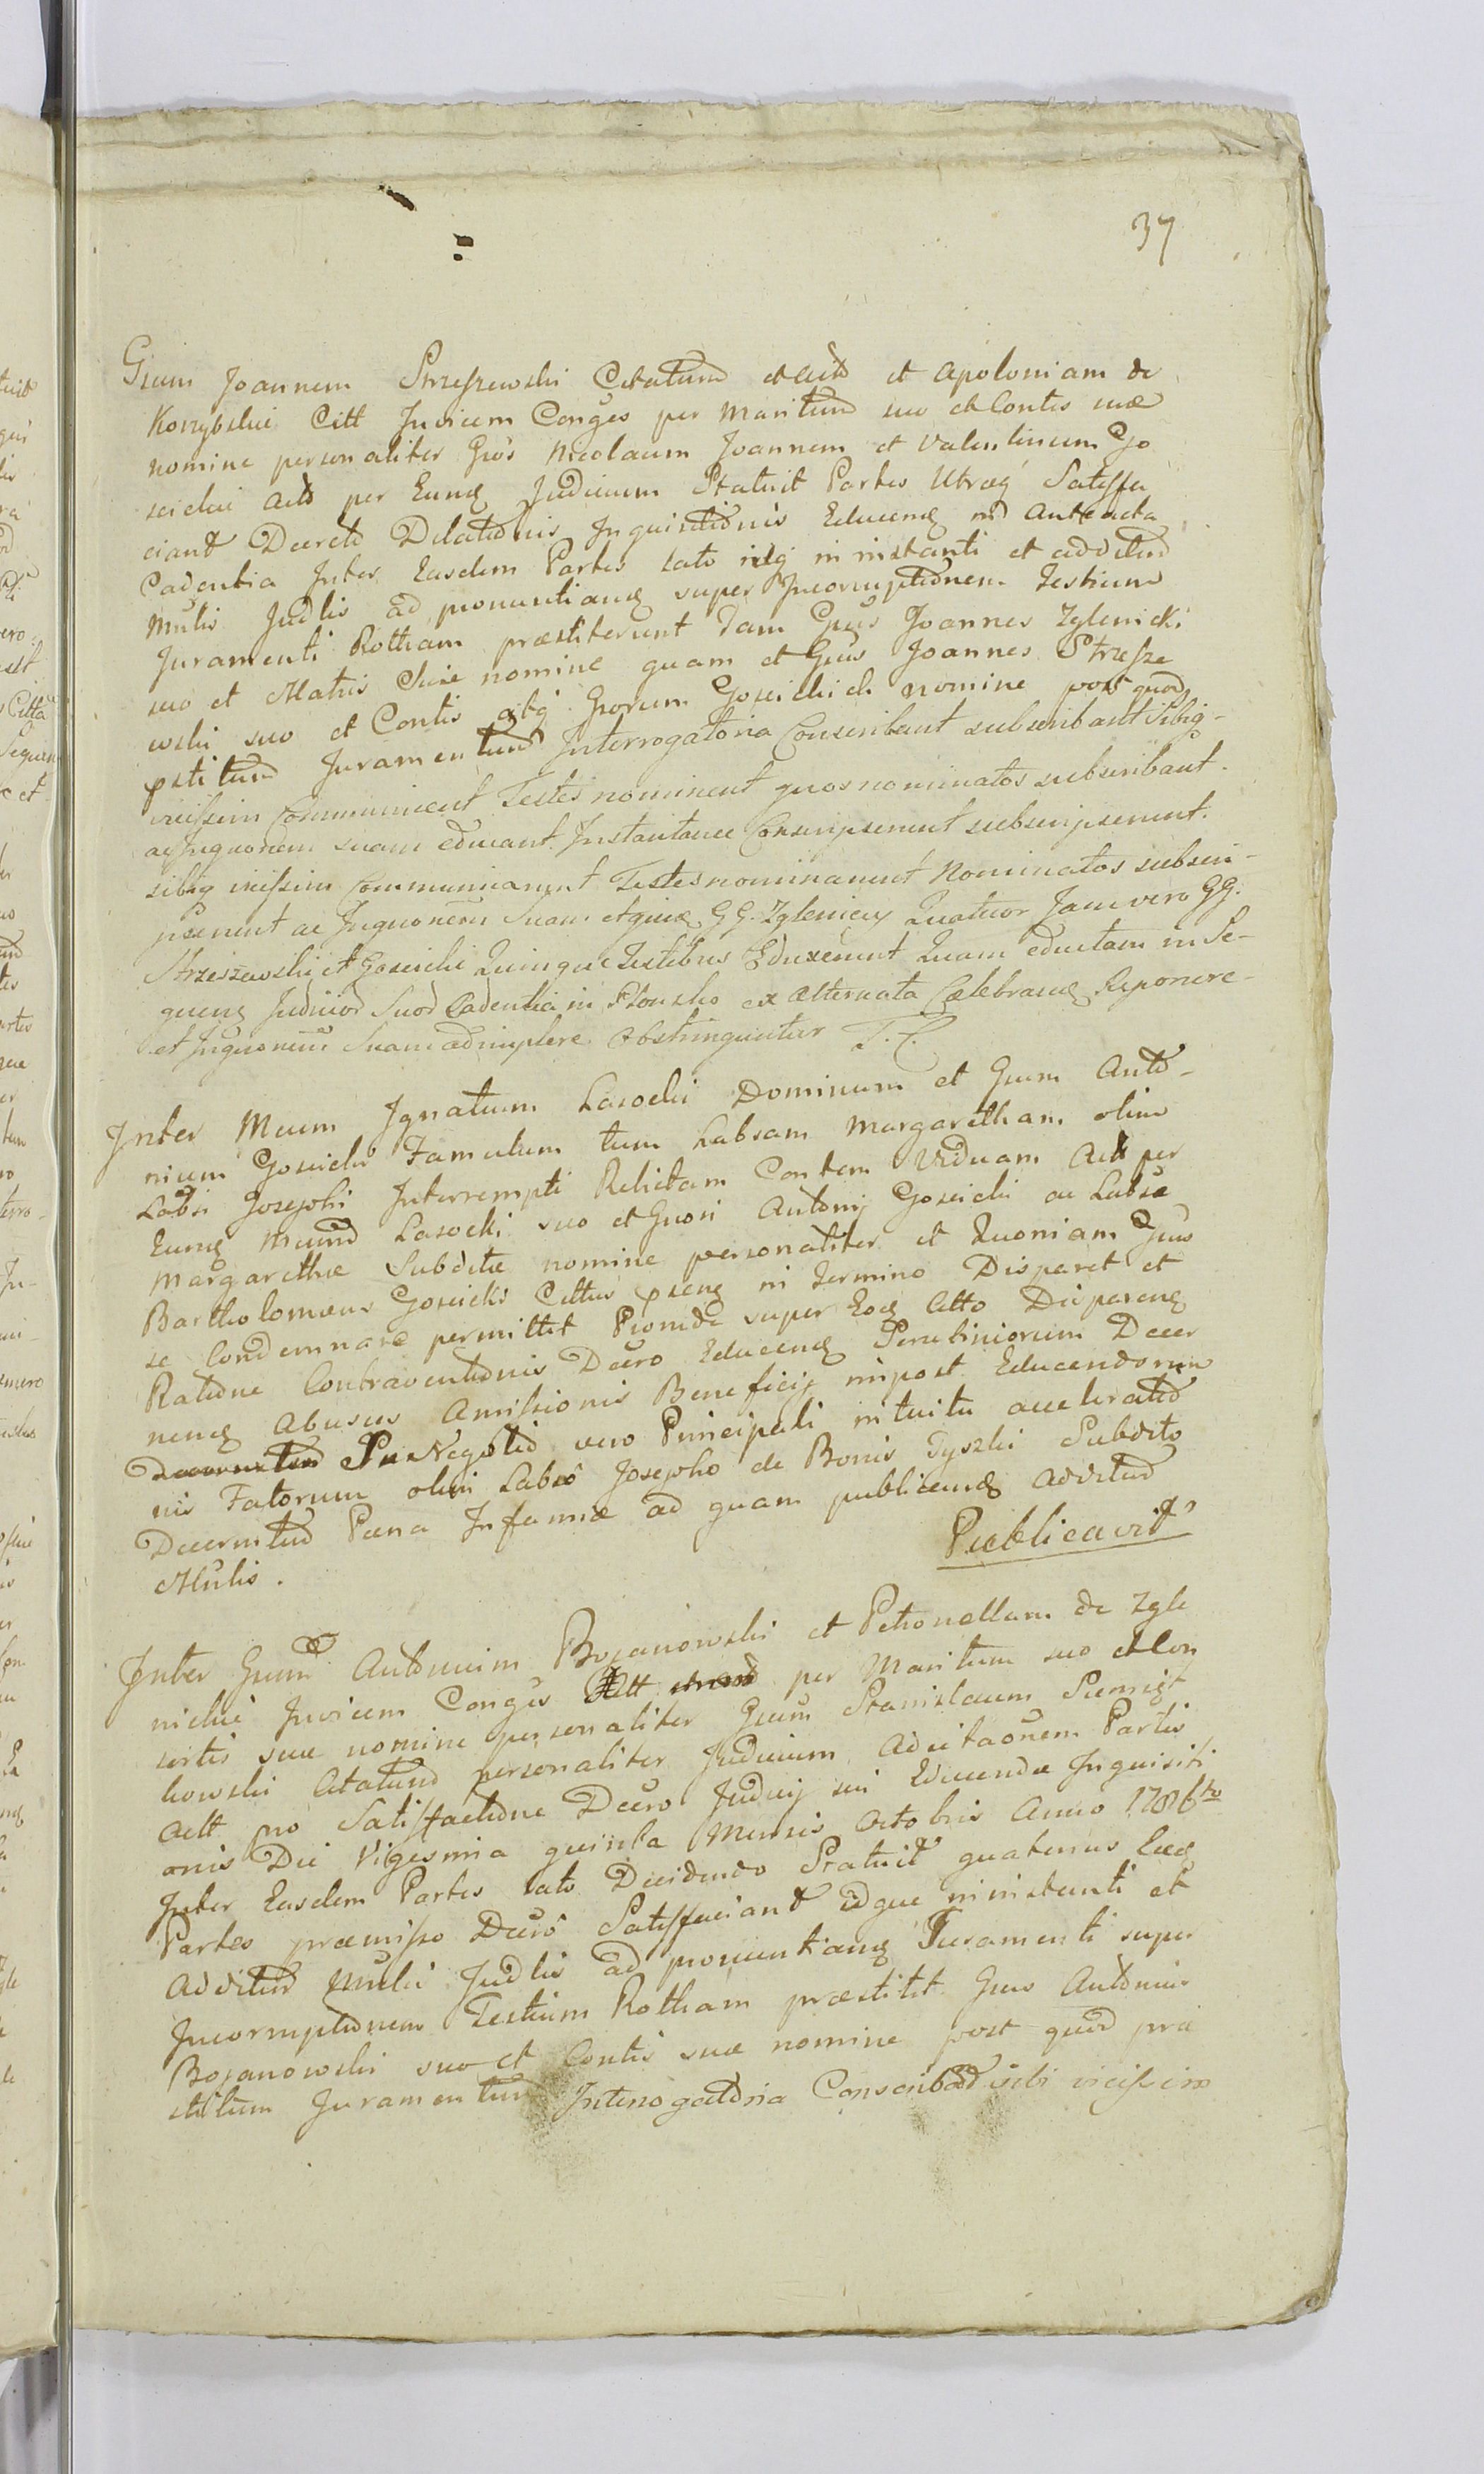 37
Gsum Joannem Strzeszewski Citatum et Acto et Apoloniam de
Korzybskie Citt Invicem Conges per Maritum suo et Contis suæ
nomine personaliter Gsos Nicolaum Joannem et Valentinum Go
scickie Acto per Eunq Judicium Statuit Partes Utræq Satisfa
ciant Decreto Dilationis Inquisitionis Educenq in Anteacta
Cadentia Inter Easdem Partes lato idq in instanti et additur
Mnlis Judlis ad pronuntianq super Incorruptionem Testium
Juramenti Rotham præstiterunt Tam Gsus Joannes Zglenicki
suo et Matris Suæ nomine quam et Gsus Joannes Strzesze
wski suo et Contis atq Gsorum Goscickich nomine post quod
pstitum Juramentum Interrogatoria Conscribant subscribant Sibiq
vicissim Communicent Testes nominent quos nominatos subscribant
ac Inquonem suam educant. Instantanee Conscripserunt subscripserunt.
sibiq vicissim Communicarunt Testes nominarunt Nominatos subscri-
pserunt ac Inquonem Suam GG. Zgleniccy Quatuor Jam vero GG.
Strzeszewski et Goscicki Quinque Testibus Eduxerunt Quam eductam in Se-
quenq Judicior Suor Cadentia in Płonsko ex Alternata Celebranq Reponere
et Inquonem Suam adimplere Obstringuntur T. C.
Inter Mcum Ignatium Lasocki Dominum et Gsum Anto-
nium Goscicki Famulum tum Labsam Margaretham olim
Labsi Josephi Interrempti Relictam Contem Viduam Act per
Eunq Mcum Lasocki suo et Gnosi Antonij Goscicki ac Labsæ
Margarethæ Subditæ nomine personaliter et Quoniam Gsus
Bartholomæus Goscicki Cittus psenq in Termino Disparet et
se Condemnare permittit Proinde super Eoq Citto Disparenq
Ratione Contraventionis Decro Educenq Scrutiniorum Decer
nenq Abusus Amissionis Beneficij inpost Educendorum
Decernitur In Negotio vero Principali intuitu acceleratio
nis Fatorum olim Labso Josepho de Bonis Tyszki Subdito
Decernitur Pæna Infamiæ ad quam publicanq additur
Mnlis.
Publicavit
Inter Gsum Antonium Bojanowski et Petronellam de Zgle
nickie Invicem Conges Act per Maritum suo et Con
sortis suæ nomine personaliter Gsum Stanislaum Pienięt
kowski Citatum personaliter Judicium Adcitaonem Partis
Actt no Satisfactione Decro Judicij sui Educendæ Inquisiti
onis Die Vigesima quinta Mensis Octobris Anno 1786to
Inter Easdem Partes lato Decidendo Statuit quatenus Eæq
Partes præmisso Decro Satisfaciant idque in instanti et
Additur Mnlis Judlis ad pronuntianq Juramenti super
Incorruptionem Testium Rotham præstitit Gsus Antonius
Bojanowski suo et Contis suæ nomine post quod præ
stitum Juramentum Interrogatoria Conscribant sibi vicissim